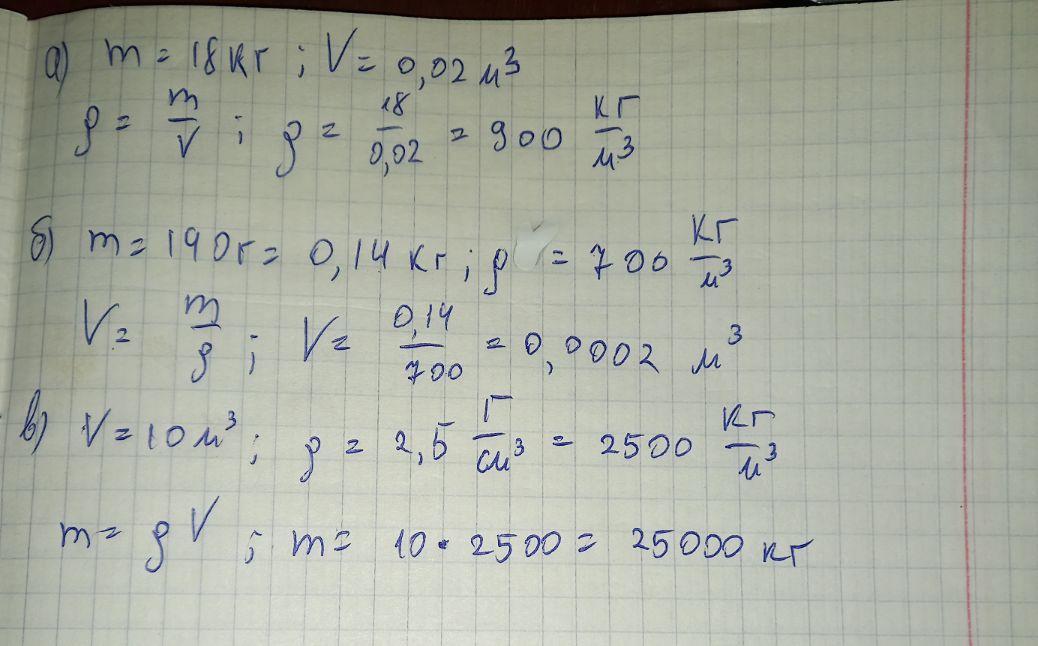 а) m = 18 кг ; V = 0,02 м³
ρ = m/V ; ρ = 18/0,02 = 900 кг/м³
б) m = 140г = 0,14 кг ; ρ = 700 кг/м³
V = m/ρ ; V = 0,14/700 = 0,0002 м³
в) V = 10 м³ ; ρ = 2,5 г/см³ = 2500 кг/м³
m = ρV ; m = 10 · 2500 = 25000 кг